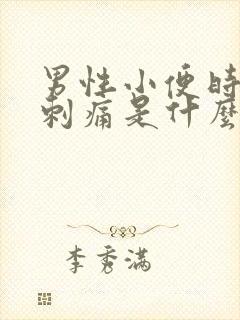 男性小便时
刺痛是什麼
李秀满